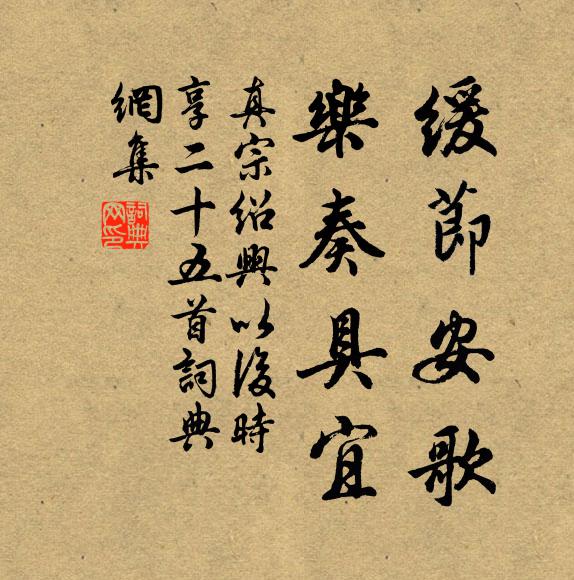 緩節安歌
樂奏具宜
真宗紹興以後時
享二十五首詞典
網集
詞典
网印